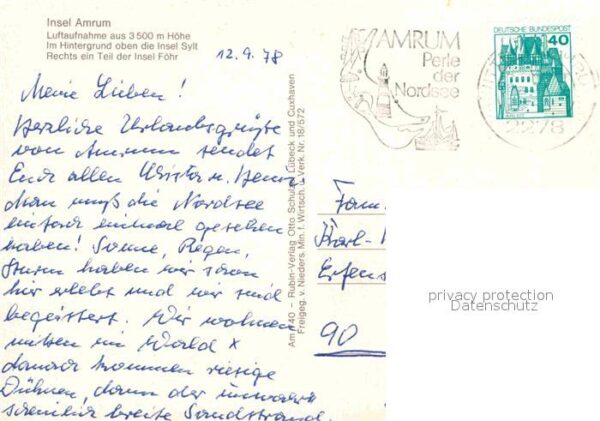 Insel Amrum
Luftaufnahme aus 3500 m Höhe
Im Hintergrund oben die Insel Sylt
Rechts ein Teil der Insel Föhr
12.9.78
Meine Lieben!
Herzliche Urlaubsgrüße
von Amrum sendet
Euch allen
Man muß die Nordsee
einfach einmal gesehen
haben! Sonne, Regen,
Sturm haben wir schon
hier erlebt und wir sind
begeistert. Wir wohnen
mitten im Wald x
danach kommen riesige
Dühnen, dann der unwahr=
scheinlich breite Sandstrand.
Am 140 - Rubin-Verlag Otto Schulze, Lübeck und Cuxhaven
Freigeg. v. Nieders. Min. f. Wirtsch. u. Verk. Nr. 18/572
AMRUM
Perle
der
Nordsee
DEUTSCHE BUNDESPOST
40
2278
Fam.
Karl-
90
privacy protection
Datenschutz